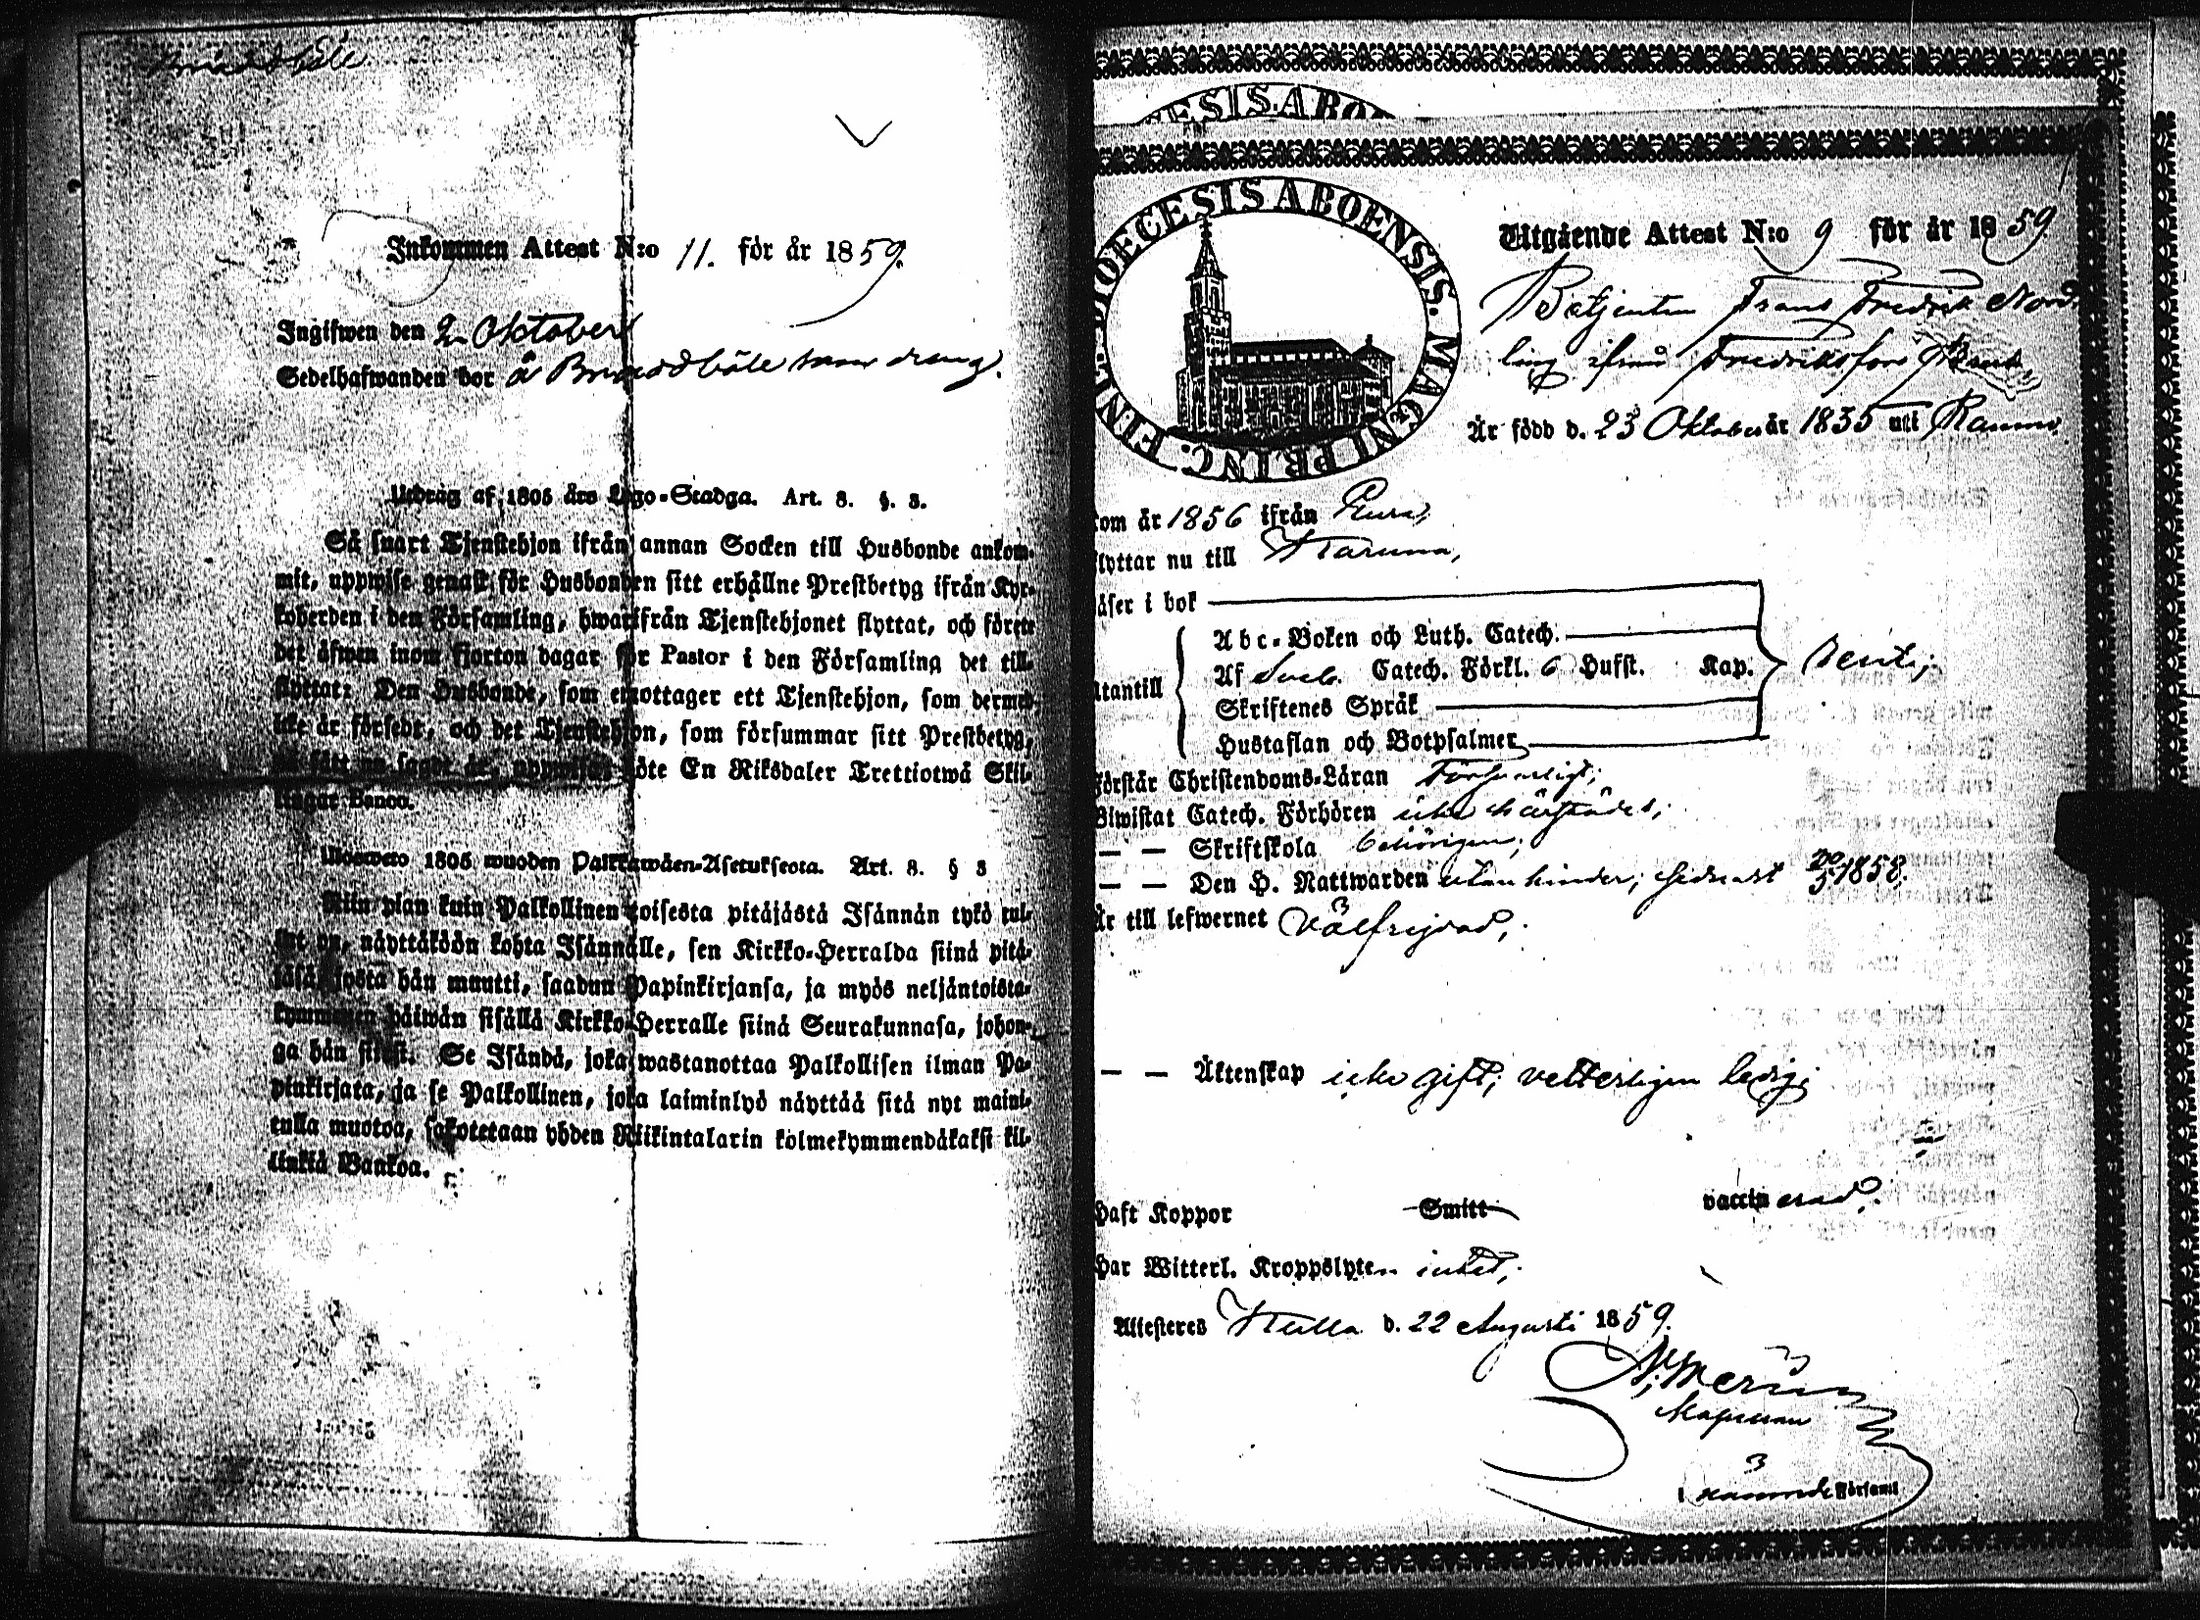 Inkommen Attest N:o 11. för år 1859.
Ingifwen den 2 Oktober
Sedelhafwanden bor å som dreng.
Utdrag af 1805 års Lego-Stadga. Art. 8. §. 3.
Så snart Tjenstehjon ifrån annan Socken till Husbonde ankom-
mit, uppwise genast för Husbonden sitt erhållne Prestbetyg ifrån Kyr-
koherden i den Församling, hwarifrån Tjenstehjonet flyttat, och förete
det äfwen inom fjorton dagar för Pastor i den Församling det till-
flyttat: Den Husbonde, som emottager ett Tjenstehjon, som dermed
icke är försedt, och det Tjenstehjon, som försummar sitt Prestbetyg,
på sätt nu sagdt är, uppwisa, böte En Riksdaler Trettiotwå Skil-
lingar Banco.
Ulosweto 1805 wuoden Palkkawäen-Asetuksesta. Art. 8. § 3
Niin pian kuin Palkollinen toisesta pitäjästä Isännän tykö tul-
lut on, näyttäköön kohta Isännälle, sen Kirkko-Herralda siinä pitä-
jäsä, josta hän muutti, saadun Papinkirjansa, ja myös neljäntoista-
kymmenen päiwän sisällä Kirkko-Herralle siinä Seurakunnasa, johon-
ga hän siirsi. Se Isändä, joka wastanottaa Palkollisen ilman Pa-
pinkirjata, ja se Palkollinen, joka laiminlyö näyttää sitä nyt maini-
tulla muotoa, sakotetaan yhden Riikintalarin kolmekymmendäkaksi kil-
linkiä Bankoa.
DIOECESIS ABOENSIS. MAGNI PRINC. FINL.
Utgående Attest N:o 9 för år 1859
Betjenten Frans Fredrik Nord-
ling ifrån Fredriksfors Bruk,
Är född d. 23 Oktober år 1835 uti Raumo.
kom år 1856 ifrån Eura,
flyttar nu till Karuna,
läser i bok
Abc-Boken och Luth. Catech.
Af Sveb. Catech. Förkl. 6 Hufst. Kap.
utantill
Skriftenes Språk
Hustaflan och Botpsalmer
Förstår Christendoms-Läran Försvarligt;
Biwistat Catech. Förhören icke härstädes;
— — Skriftskola behörigen;
— — Den H. Nattwarden utan hinder; sednast 20/5 1858.
Är till lefwernet välfrejdad,
— — Äktenskap icke gift; vetterligen ledig;
Haft Koppor Smitt vaccinerad.
Har Witterl. Kroppslyten intet;
Attesteres Kulla d. 22 Augusti 1859.
Kapellan
i Församl